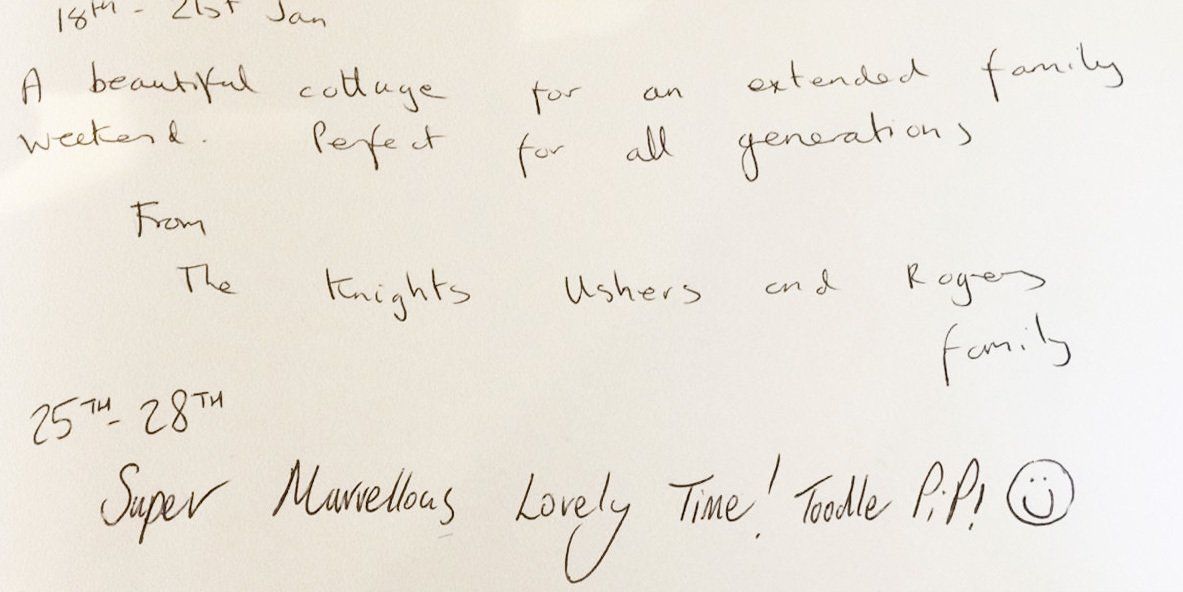 18th - 21st Jan
A beautiful cottage for an extended family
weekend. Perfect for all generations
From
The Knights Ushers and Rogers
family
25TH - 28TH
Super Marvellous Lovely Time! Toodle Pip! ☺